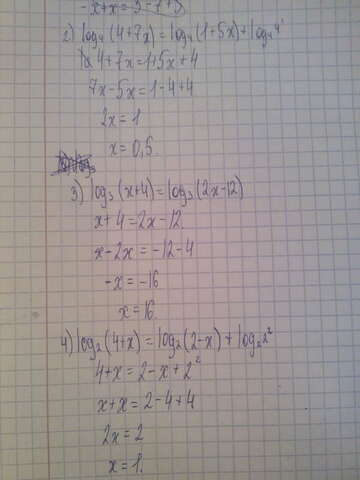 -x+x=3-1+3
2) log₄(4+7x)=log₄(1+5x)+log₄4¹
4+7x=1+5x+4
7x-5x=1-4+4
2x=1
x=0,5.
3) log₃(x+4)=log₃(2x-12)
x+4=2x-12.
x-2x=-12-4
-x=-16
x=16.
4) log₂(4+x)=log₂(2-x)+log₂2²
4+x=2-x+2²
x+x=2-4+4
2x=2
x=1.